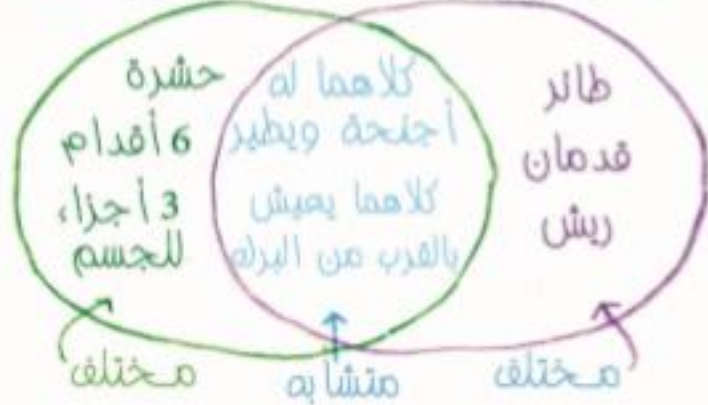 طائر
قدمان
ريش
كلاهما له
أجنحة ويطير
كلاهما يعيش
بالقرب من البرك
حشرة
6 أقدام
3 أجزاء
للجسم
مختلف
متشابه
مختلف